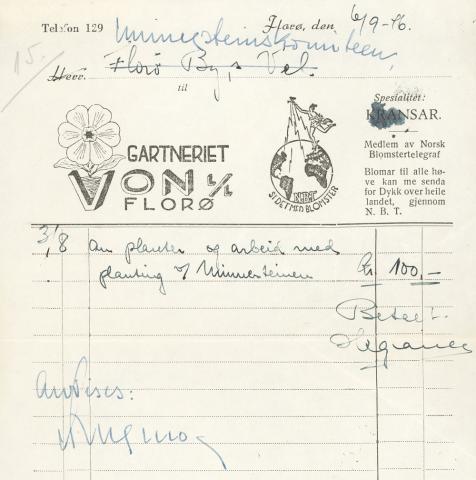 Telefon 129
Florø, den 6/9-46.
Minnesteinskomiteen,
15.
Herr. Florø By,s Vel.
til
GARTNERIET
VON 1/L
FLORØ
NBT
SI DET MED BLOMSTER
Spesialitet:
KRANSAR.
Medlem av Norsk
Blomstertelegraf
Blomar til alle hø-
ve kan me senda
for Dykk over heile
landet, gjennom
N. B. T.
3/8 an planter og arbeid med
planting of Minnesteinen kr. 100,-
Betalt.
Anvises: